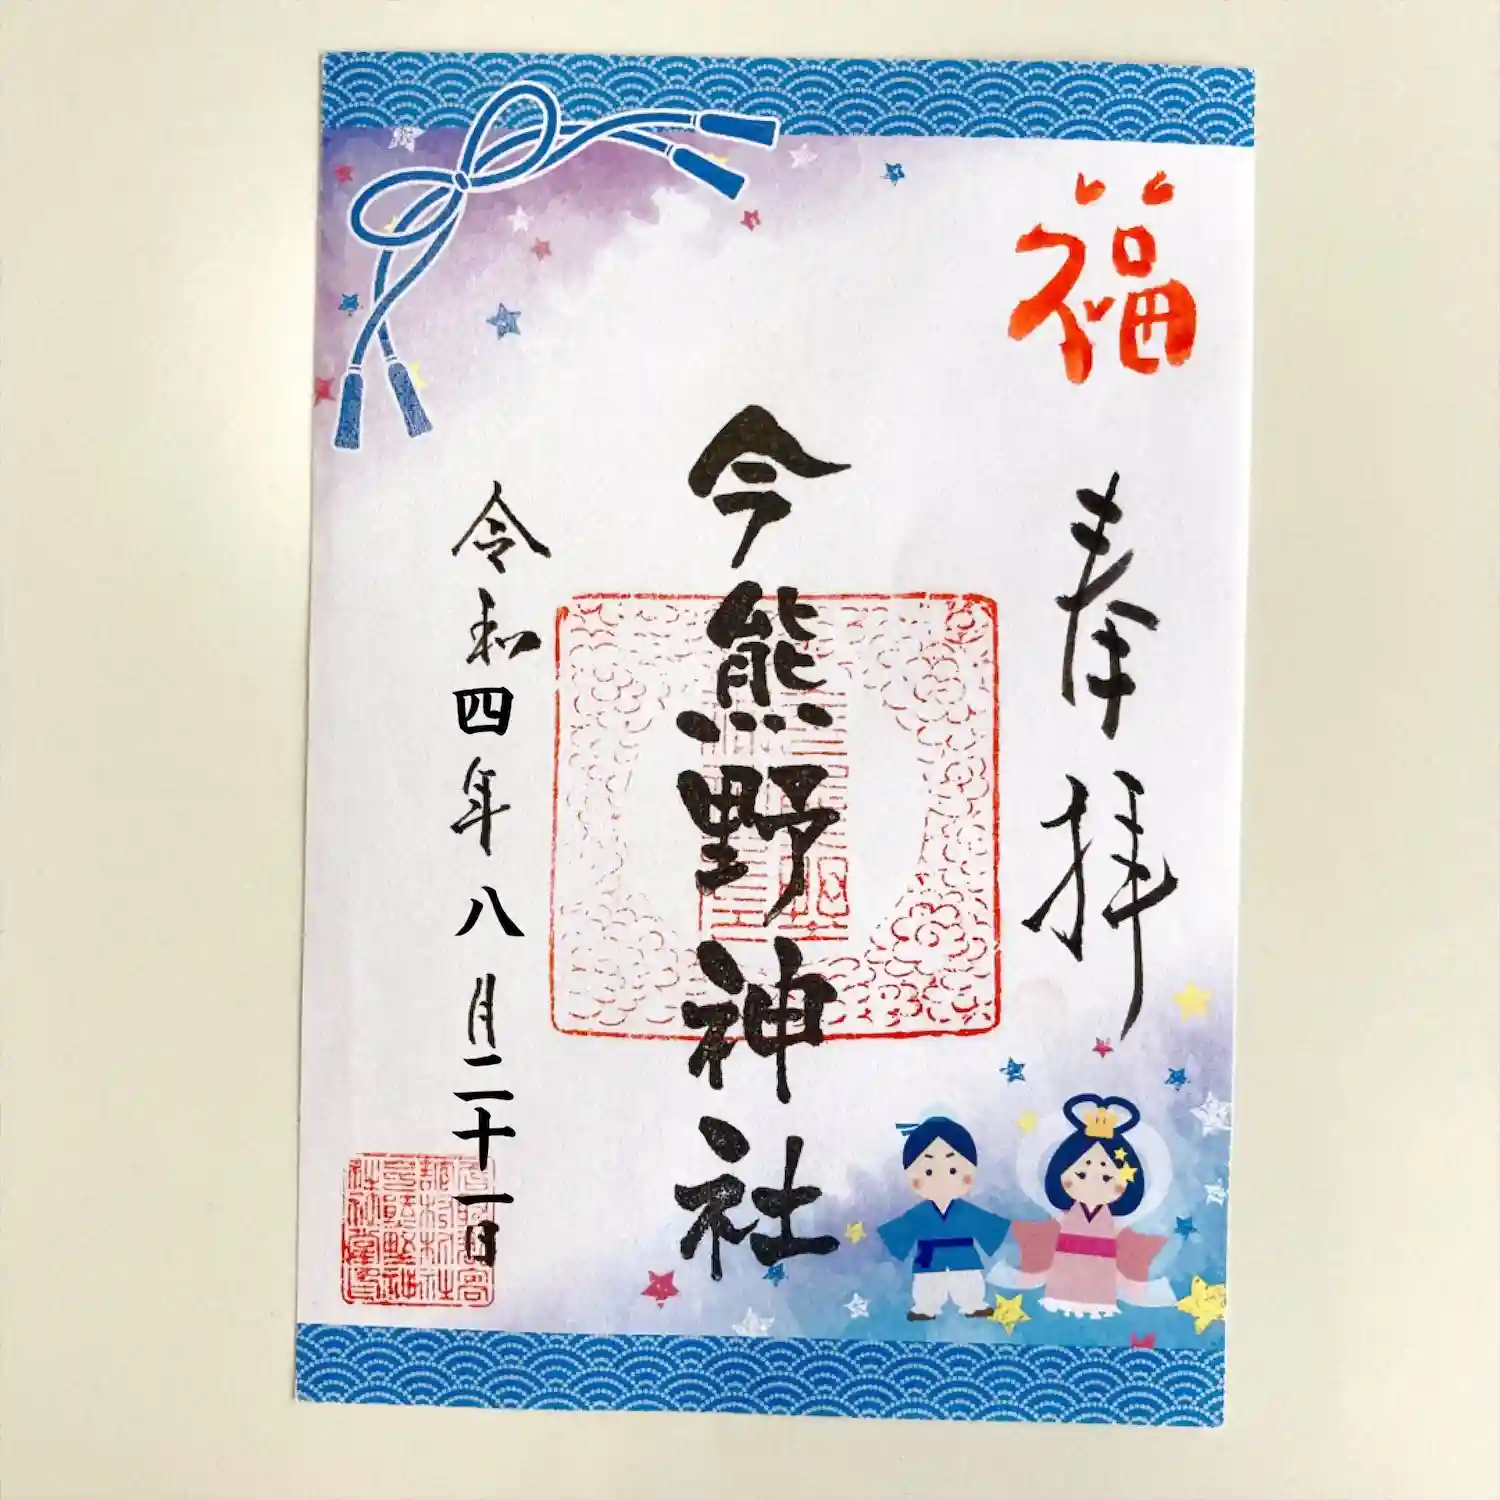 福
奉拝
今熊野神社
令和四年八月二十一日